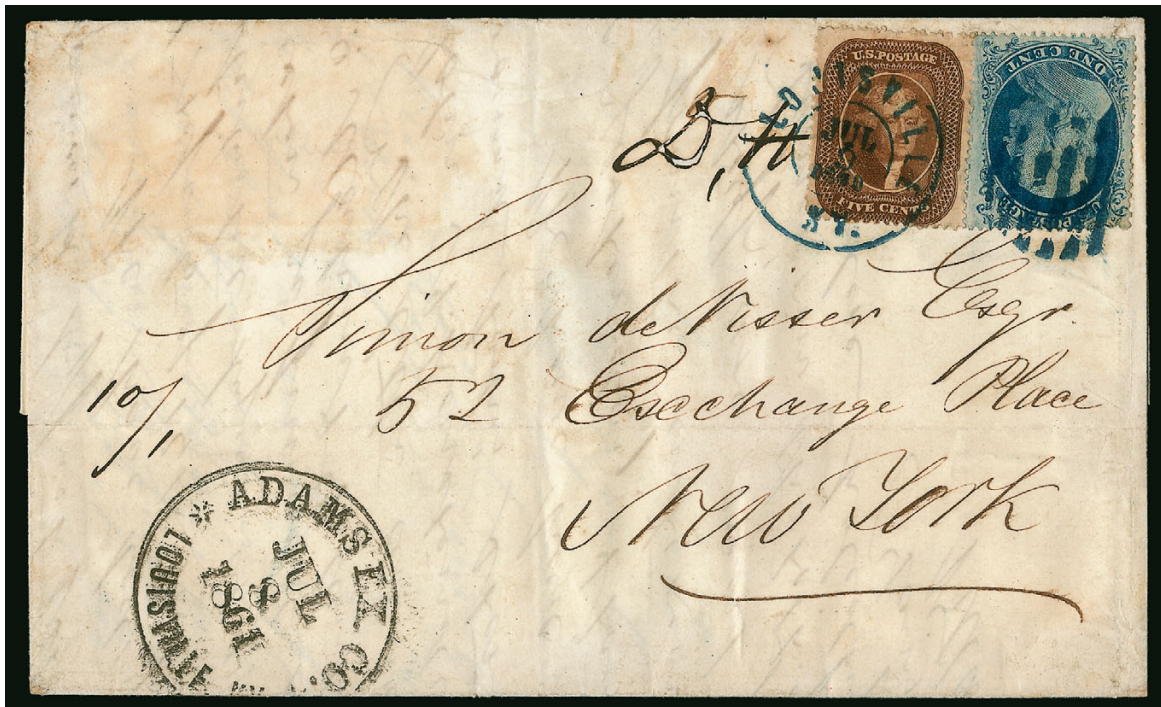 U.S. POSTAGE
FIVE CENTS
ONE CENT
U.S. POSTAGE
LOUISVILLE
JUL
KY.
D, H
Simon de Visser Esqr.
52 Exchange Place
New York
10/1
* ADAMS EX CO. LOUISVILLE
JUL
8
1861